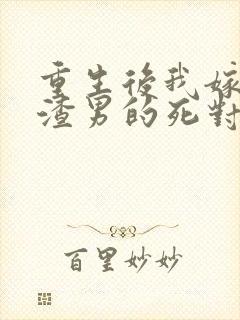 重生後我嫁
渣男的死對
百里妙妙